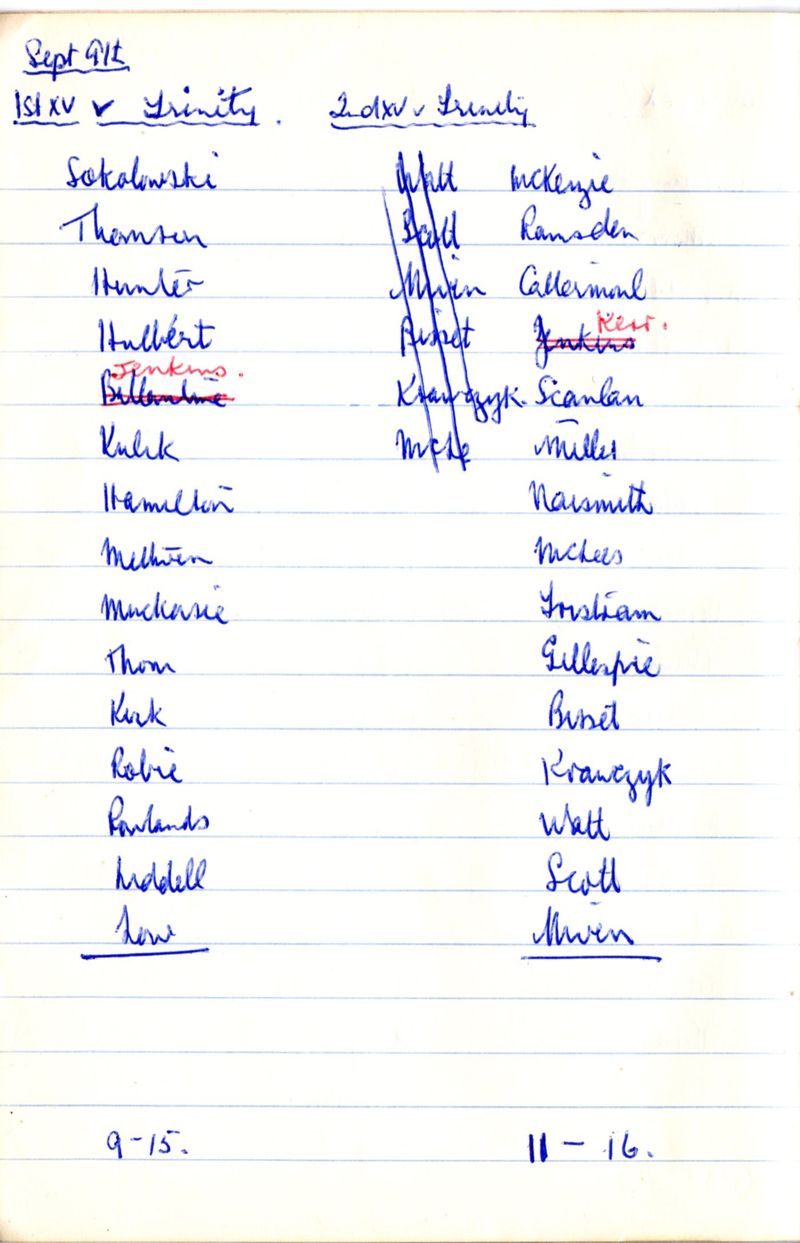 Sept 9th
1st XV v Trinity. 2nd XV v Trinity
Sokolowski Watt McKenzie
Thomson Scott Ramsden
Hunter Niven
Hulbert Bisset Jenkins Kerr.
Jenkins.
Ballantine Krawczyk. Scanlan
Kulik McLe Miller
Hamilton Naismith
Methven McLees
Mackasie
Thom Gillespie
Kirk Bisset
Robie Krawczyk
Rowlands Watt
Liddell Scott
Low Niven
9-15. 11 - 16.